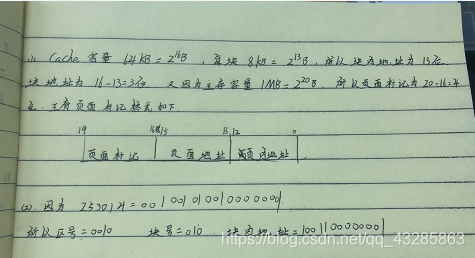 (1) Cache 容量 64KB=2^16B, 每块 8KB=2^13B, 所以块内地址为 13位
块地址为 16-13=3位 又因为主存容量 1MB=2^20B, 所以页面标记为 20-16=4
位. 主存页面标记格式如下
19 13 12 0
页面标记 页面地址 页内地址
(2) 因为 25301H=0010 0101 0011 0000 0001
所以区号=0010 块号=010 块内地址=1001100000001
https://blog.csdn.net/qq_43285863